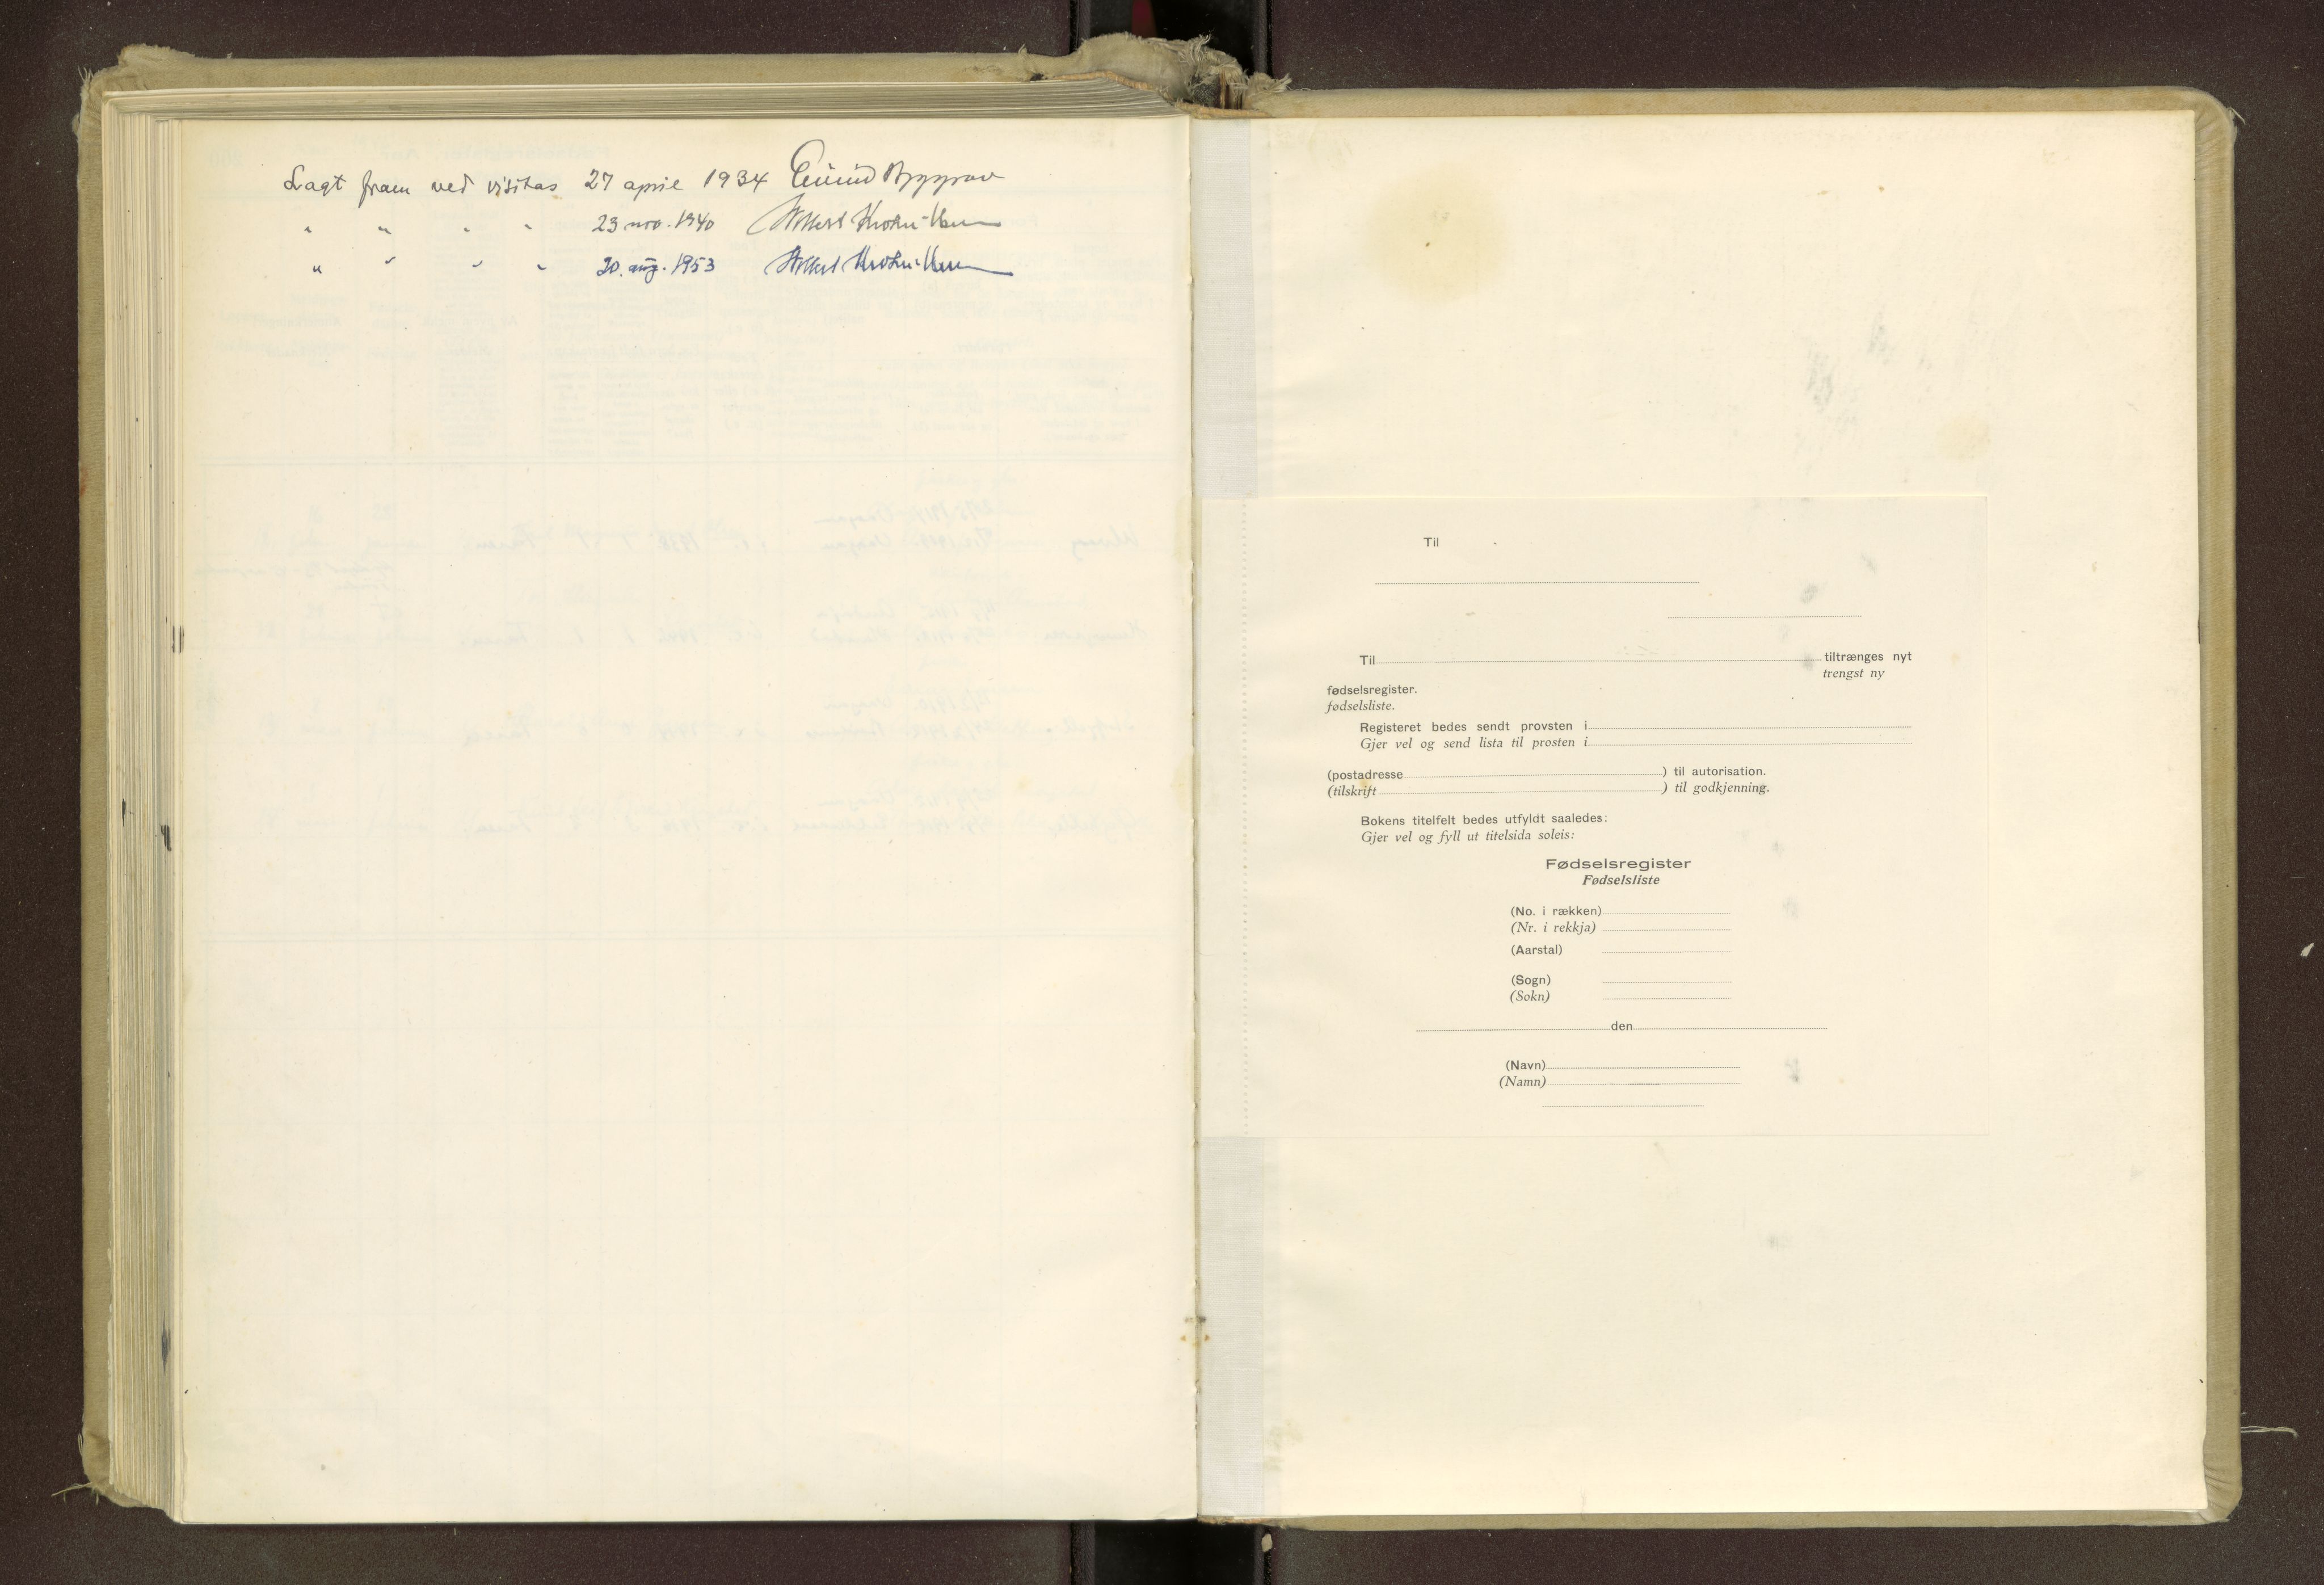 Lagt fram ved visitas 27 april 1934 Eivind Berggrav
" " " " 23 nov. 1940
" " " " 20. aug. 1953
Til
Til tiltrænges nyt
trengst ny
fødselsregister.
fødselsliste.
Registeret bedes sendt provsten i
Gjer vel og send lista til prosten i
(postadresse ) til autorisation.
(tilskrift ) til godkjenning.
Bokens titelfelt bedes utfyldt saaledes:
Gjer vel og fyll ut titelsida soleis:
Fødselsregister
Fødselsliste
(No. i rækken)
(Nr. i rekkja)
(Aarstal)
(Sogn)
(Sokn)
den
(Navn)
(Namn)